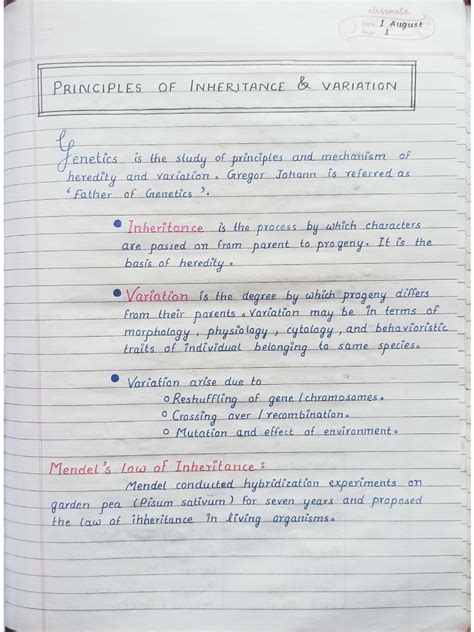 classmate
Date 1 August
Page 1
PRINCIPLES OF INHERITANCE & VARIATION
Genetics is the study of principles and mechanism of
heredity and variation. Gregor Johann is referred as
'Father of Genetics'.
• Inheritance is the process by which characters
are passed on from parent to progeny. It is the
basis of heredity.
• Variation is the degree by which progeny differs
from their parents. Variation may be in terms of
morphology, physiology, cytology, and behavioristic
traits of individual belonging to same species.
• Variation arise due to
o Reshuffling of gene/chromosomes.
o Crossing over/recombination.
o Mutation and effect of environment.
Mendel's law of Inheritance:
Mendel conducted hybridization experiments on
garden pea (Pisum sativum) for seven years and proposed
the law of inheritance in living organisms.